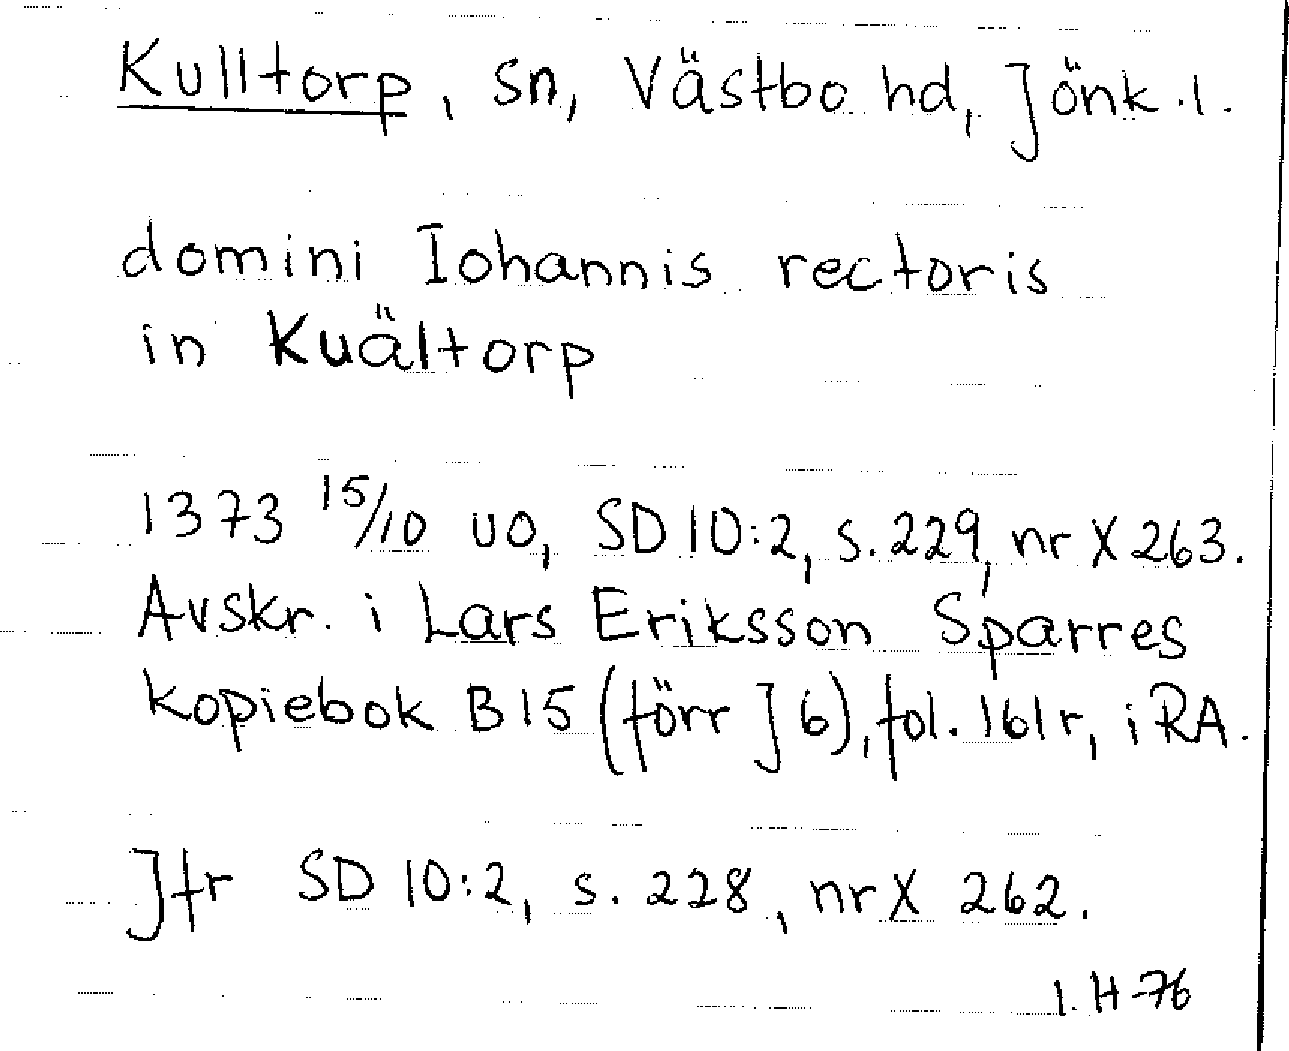 Kulltorp, sn, Västbo hd, Jönk.l.
domini Iohannis rectoris
in Kuältorp
1373 15/10 uo, SD 10:2, s. 229, nr X 263.
Avskr. i Lars Eriksson Sparres
kopiebok B 15 (förr J 6), fol. 161r, i RA.
Jfr SD 10:2, s. 228, nr X 262.
I. H-76